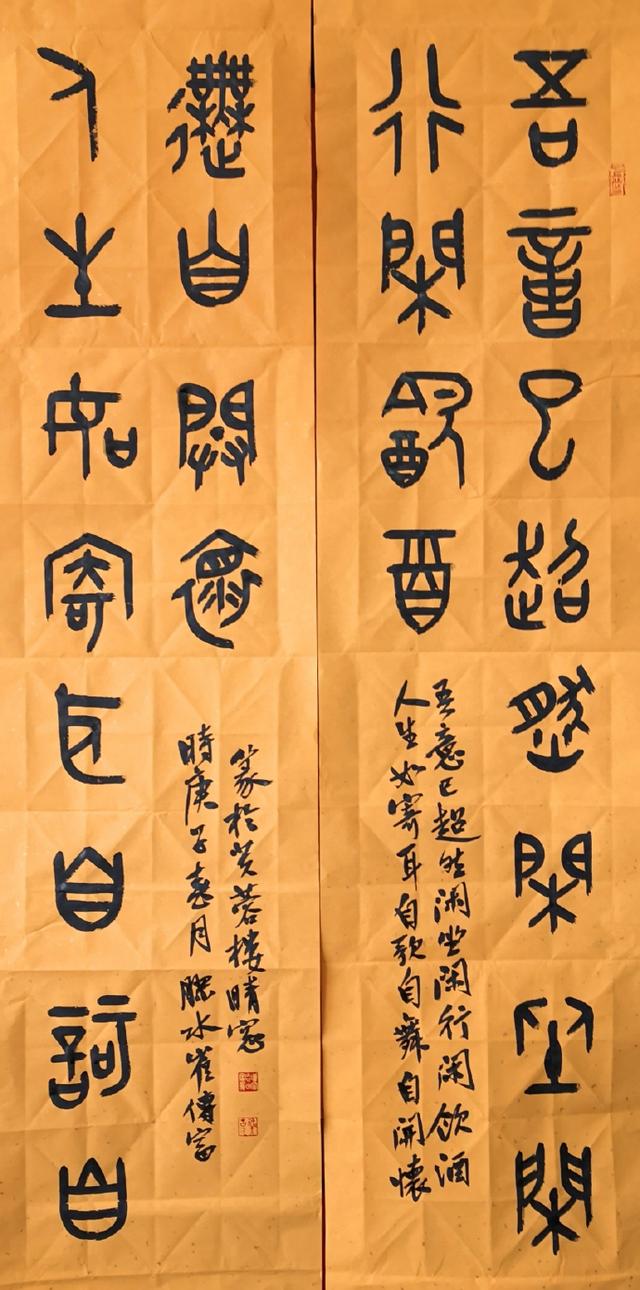 吾意已超然閑坐閑
行閑飲酒
吾意已超然闲坐闲行闲飲酒
人生如寄耳自歌自舞自開懷
人生如寄耳自訶自
舞自開懷
篆於芙蓉樓晴窗
時庚子春月膠水崔傳富